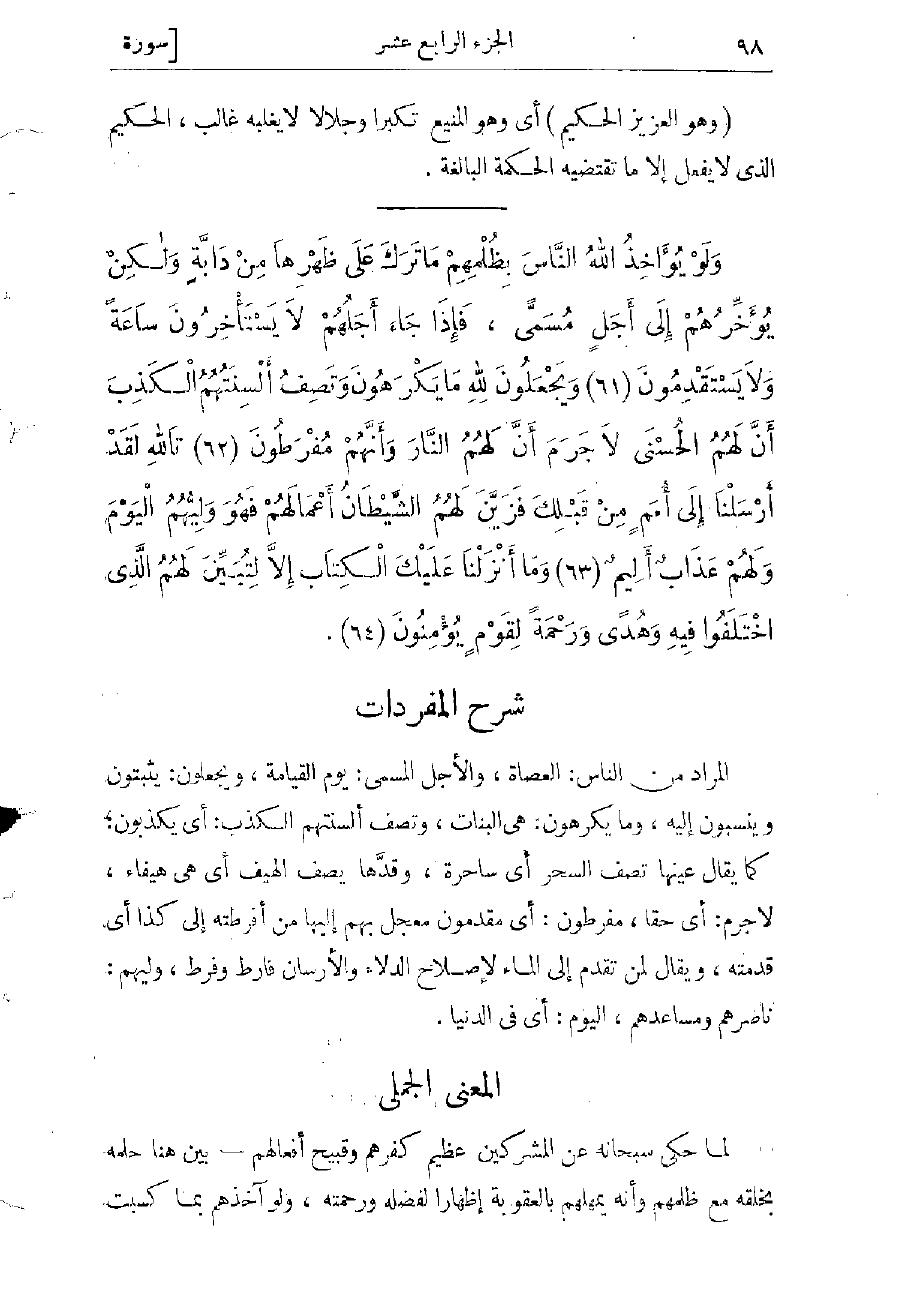 ٩٨ الجزء الرابع عشر [سورة
( وهو العزيز الحكيم ) أى وهو المنيع تكبرا وجلالا لا يغلبه غالب ، الحكيم
الذى لا يفعل إلا ما تقتضيه الحكمة البالغة .
وَلَوْ يُؤَاخِذُ اللهُ النَّاسَ بِظُلْمِهِمْ مَا تَرَكَ عَلَى ظَهْرِها مِنْ دَابَّةٍ وَلٰكِنْ
يُؤَخِّرُهُمْ إِلَى أَجَلٍ مُسَمًّى ، فَإِذَا جَاء أَجَلُهُمْ لاَ يَسْتَأْخِرُونَ ساعَةً
وَلاَ يَسْتَقْدِمُونَ (٦١) وَيَجْعَلُونَ لِلهِ مَا يَكْرَهُونَ وَتَصِفُ أَلْسِنَتُهُمُ الْكَذِبَ
أَنَّ لَهُمُ الْحُسْنَى لاَ جَرَمَ أَنَّ لَهُمُ النَّارَ وَأَنَّهُمْ مُفْرَطُونَ (٦٢) تاللهِ لَقَدْ
أَرْسَلْنَا إِلَى أُمَمٍ مِنْ قَبْلِكَ فَزَيَّنَ لَهُمُ الشَّيْطَانُ أَعْمَالَهُمْ فَهُوَ وَلِيُّهُمُ الْيَوْمَ
وَلَهُمْ عَذَابٌ أَلِيمٌ (٦٣) وَمَا أَنْزَلْنَا عَلَيْكَ الْكِتَابَ إِلاَّ لِتُبَيِّنَ لَهُمُ الَّذِى
اخْتَلَفُوا فِيهِ وَهُدًى وَرَحْمَةً لِقَوْمٍ يُؤْمِنُونَ (٦٤) .
شرح المفردات
المراد من الناس: العصاة ، والأجل المسمى: يوم القيامة ، ويجعلون: يثبتون
وينسبون إليه ، وما يكرهون: هى البنات ، وتصف ألسنتهم الكذب: أى يكذبون؛
كما يقال عينها تصف السحر أى ساحرة ، وقدّها يصف الهيف أى هى هيفاء ،
لاجرم: أى حقا ، مفرطون : أى مقدمون معجل بهم إليها من أفرطته إلى كذا أى
قدمته ، ويقال لمن تقدم إلى الماء لإصلاح الدلاء والأرسان فارط وفرط ، وليهم :
ناصرهم ومساعدهم ، اليوم : أى فى الدنيا .
المعنى الجملى
لما حكى سبحانه عن المشركين عظيم كفرهم وقبيح أفعالهم — بين هنا حلمه
بخلقه مع ظلمهم وأنه يمهلهم بالعقوبة إظهارا لفضله ورحمته ، ولو آخذهم بما كسبت